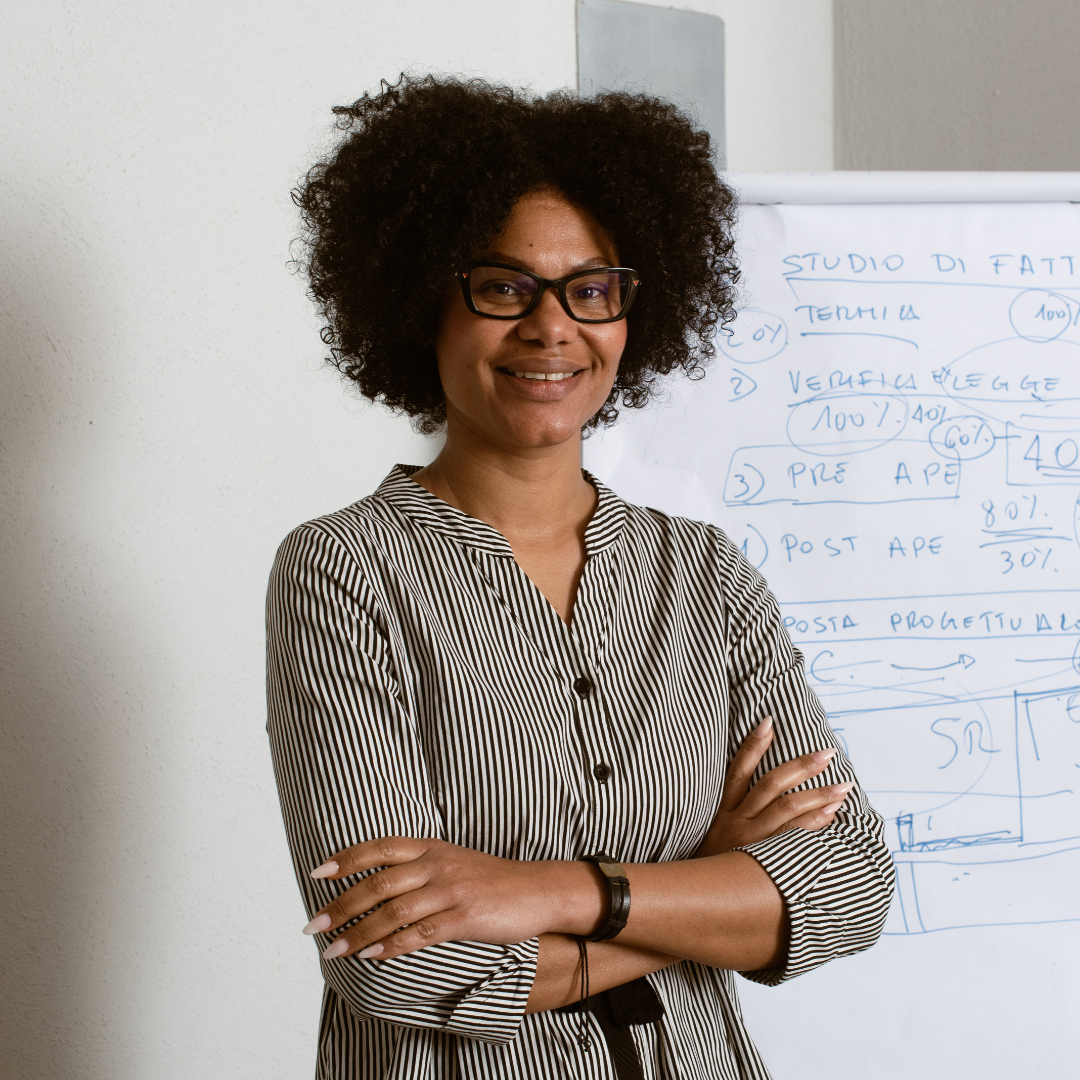 STUDIO DI FATT
TERMICA 100%
20%
2) VERIFICA E LEGGE
100% 40%
60% 40
3) PRE APE
POST APE 80%
30%
POSTA PROGETTUALE
C.
SR